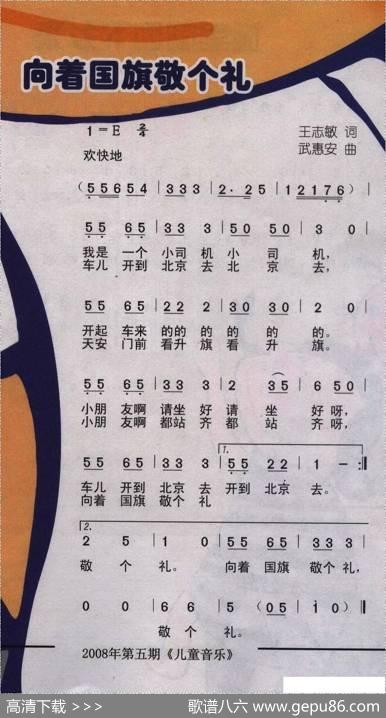 向着国旗敬个礼
1=E 2/4
王志敏 词
欢快地
武惠安 曲
(55654 | 333 | 2· 25 | 12176) |
55 65 | 33 3 | 50 50 | 3 0 |
我是 一个 小司 机 小 司 机,
车儿 开到 北京 去 北 京 去,
55 65 | 22 2 | 30 30 | 2 0 |
开起 车来 的的 的 的 的 的。
天安 门前 看升 旗 看 升 旗。
55 65 | 33 3 | 2 35 | 6 50 |
小朋 友啊 请坐 好 请 坐 好 呀,
小朋 友啊 都站 齐 都 站 齐 呀,
1.
55 65 | 33 3 | 55 22 | 1 - :‖
车儿 开到 北京 去 开到 北京 去。
向着 国旗 敬个 礼
2.
2 5 | 1 0 | 55 65 | 33 3 |
敬 个 礼。 向着 国旗 敬个 礼,
0 0 | 66 5 | (05 | 10) ‖
敬 个 礼。
2008年第五期《儿童音乐》
高清下载 >>>
歌谱八六 www.gepu86.com